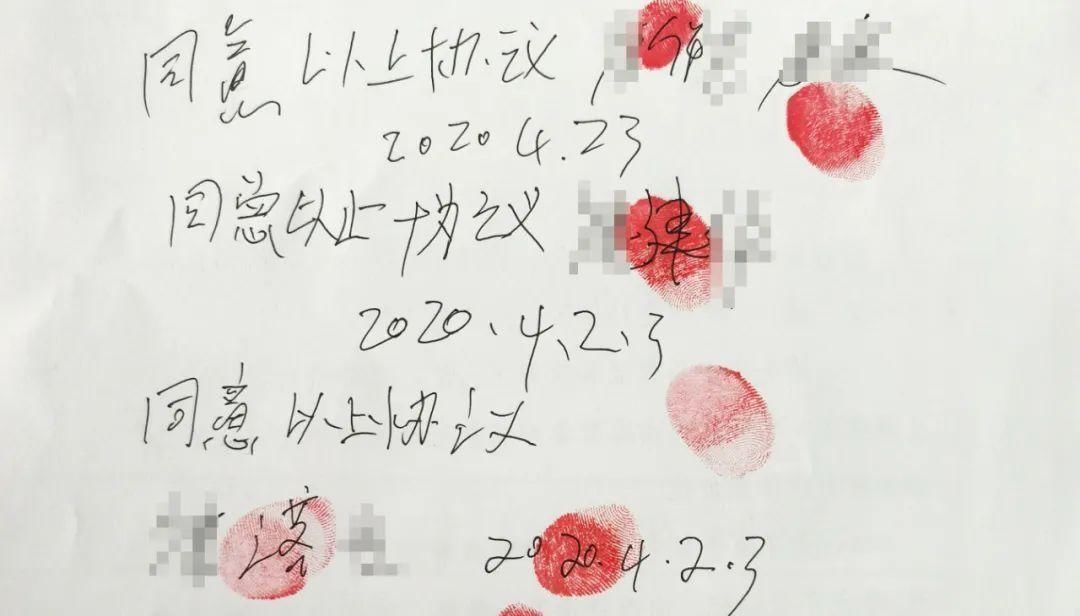 同意 以上协议
2020 4.23
同意以上协议 建
2020、4、2、3
同意 以上协议
2020.4.2.3